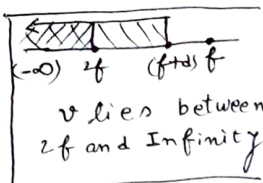 (-∞) 2f (f+d) f
v lies between
2f and Infinity